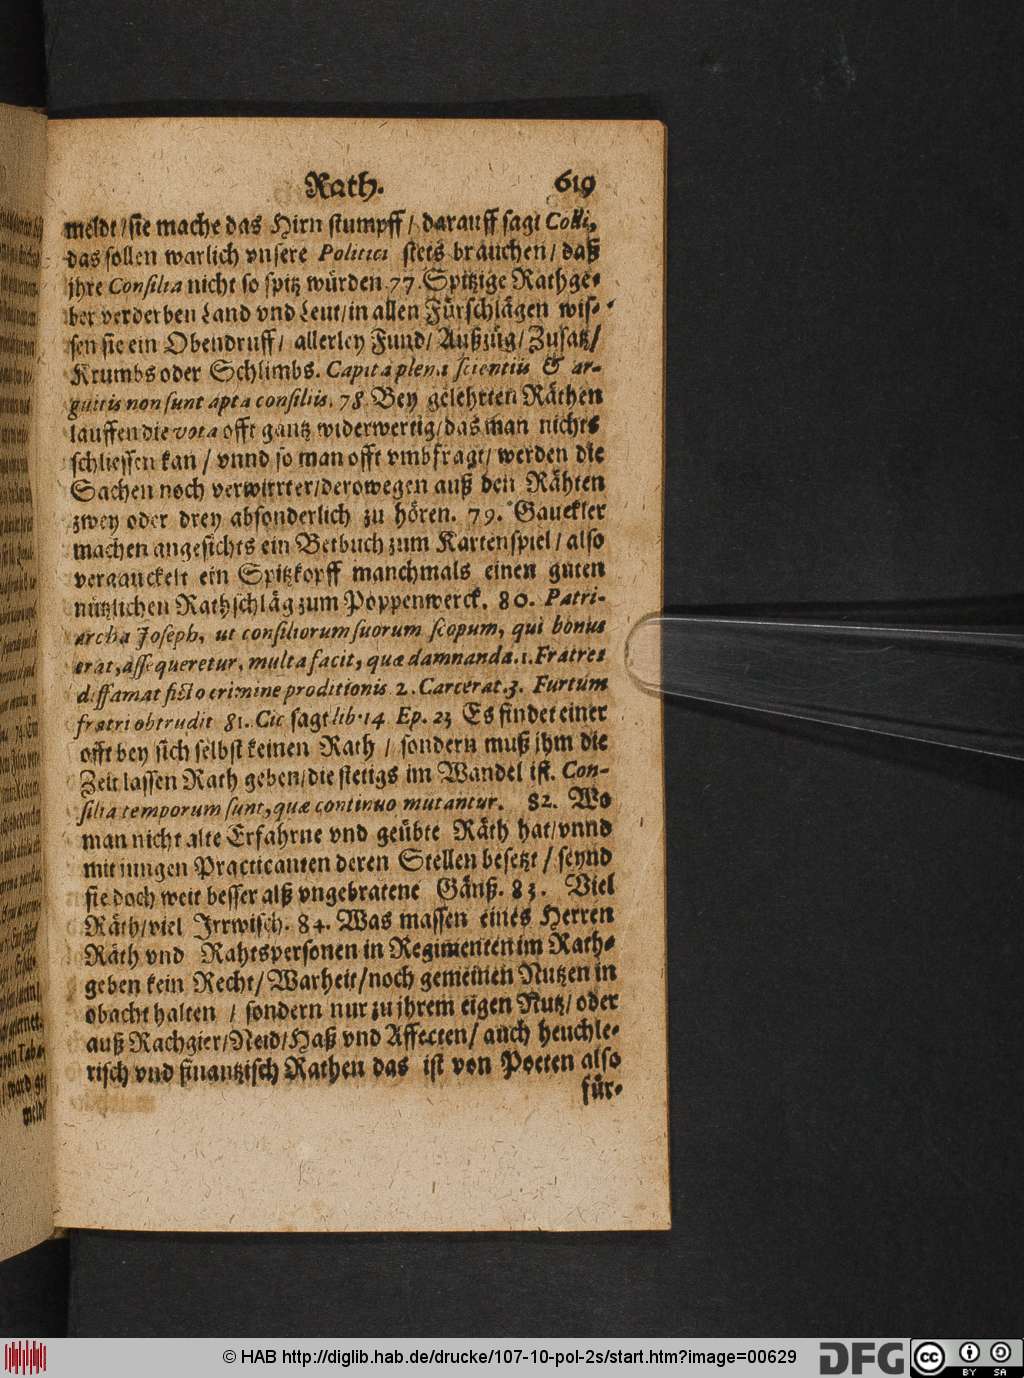 Rath. 619
meldt / sie mache das Hirn stumpff / darauff sagt Colli,
das sollen warlich vnsere Politici stets brauchen / daß
jhre Consilia nicht so spitz würden. 77. Spitzige Rathge-
ber verderben Land vnd Leut / in allen Fürschlägen wis-
sen sie ein Obendruff / allerley Fund / Außzüg / Zusatz /
Krumbs oder Schlimbs. Capita plena scientiis & ar-
gutiis non sunt apta consiliis. 78. Bey gelehrten Räthen
lauffen die vota offt gantz widerwertig / das man nichts
schliessen kan / vnnd so man offt vmbfragt / werden die
Sachen noch verwirrter / derowegen auß den Rähten
zwey oder drey absonderlich zu hören. 79. Gauckler
machen angesichts ein Betbuch zum Kartenspiel / also
vergauckelt ein Spitzkopff manchmals einen guten
nützlichen Rathschläg zum Poppenwerck. 80. Patri-
archa Joseph, ut consiliorum suorum scopum, qui bonus
erat, assequeretur, multa facit, quæ damnanda. 1. Fratres
diffamat ficto crimine proditionis 2. Carcerat. 3. Furtum
fratri obtrudit 81. Cic sagt lib. 14 Ep. 23 Es findet einer
offt bey sich selbst keinen Rath / sondern muß jhm die
Zeit lassen Rath geben / die stetigs im Wandel ist. Con-
silia temporum sunt, quæ continuo mutantur. 82. Wo
man nicht alte Erfahrne vnd geübte Räth hat / vnnd
mit jungen Practicanten deren Stellen besetzt / seynd
sie doch weit besser alß vngebratene Gänß. 83. Viel
Räth / viel Irrwisch. 84. Was massen eines Herren
Räth vnd Rahtspersonen in Regimenten im Rath-
geben kein Recht / Warheit / noch gemeinen Nutzen in
obacht halten / sondern nur zu jhrem eigen Nutz / oder
auß Rachgier / Neid / Haß vnd Affecten / auch heuchle-
risch vnd finantzisch Rathen das ist von Poeten also
für-
© HAB http://diglib.hab.de/drucke/107-10-pol-2s/start.htm?image=00629
DFG
cc BY SA